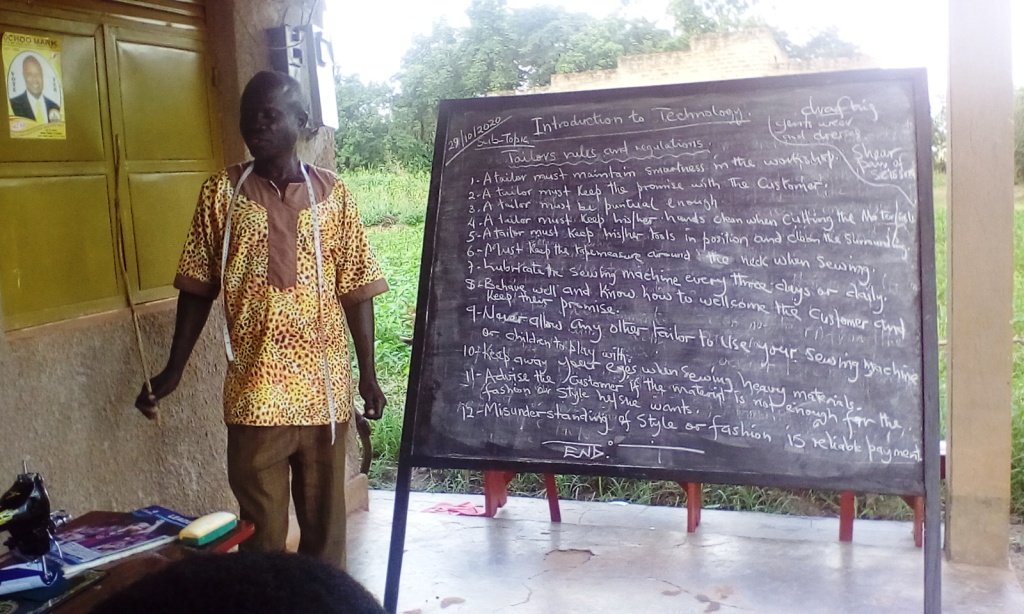 OCHOO MARK
VOTE
29/10/2020
Introduction to Technology.
Sub-Topic
Tailors rules and regulations.
drafting
gent wear
and dresses
Shear
Pairs of
Scissors
1-A tailor must maintain smartness in the workshop.
2-A tailor must keep the promise with The Customer.
3-A tailor must be puntual enough
4-A tailor must keep his/her hands clean when Cutting the Materials
5-A tailor must keep his/her tools in position and clean the Surrounding.
6-Must keep the tapemeasure around the neck when sewing.
7-Lubricate the sewing machine every three days or daily.
8-Behave well and know how to wellcome the Customer and
keep their promise.
9-Never allow any other tailor to use your sewing machine
or children to play with.
10-Keep away your eyes when sewing heavy materials.
11-Advise the Customer if the material is not enough for the
fashion or style he/she wants.
12-Misunderstanding of style or fashion is reliable payment
END: